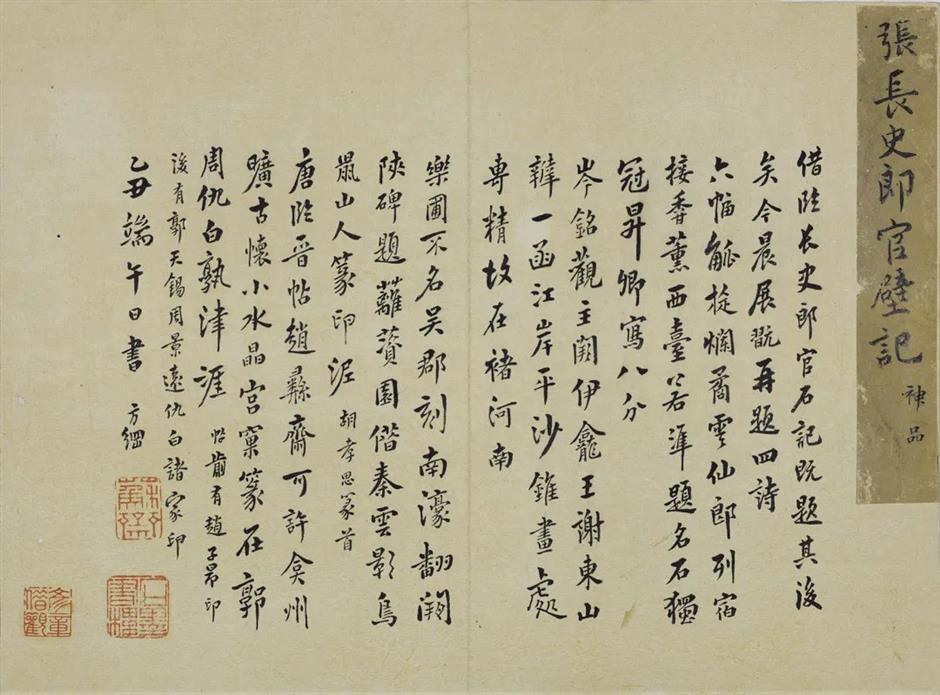 張長史郎官壁記
神品
借臨長史郎官石記既題其後
矣今晨展翫再題四詩
六幅觚棱爛矞雲仙郎列宿
接香薰西臺若準題名石獨
冠昇卿寫八分
岑銘觀主闕伊龕王謝東山
韡一函江岸平沙錐畫處
專精故在褚河南
樂圃不名吳郡刻南濠翻闕
陝碑題薋園偕秦雲影鳥
鼠山人篆印泥 胡孝思篆首
唐臨晉帖趙彝齋可許弇州
曠古懷小水晶宮窠篆在郭
周仇白孰津涯 帖前有趙子昂印
後有郭天錫周景遠仇白諸家印
乙丑端午日書 方綱